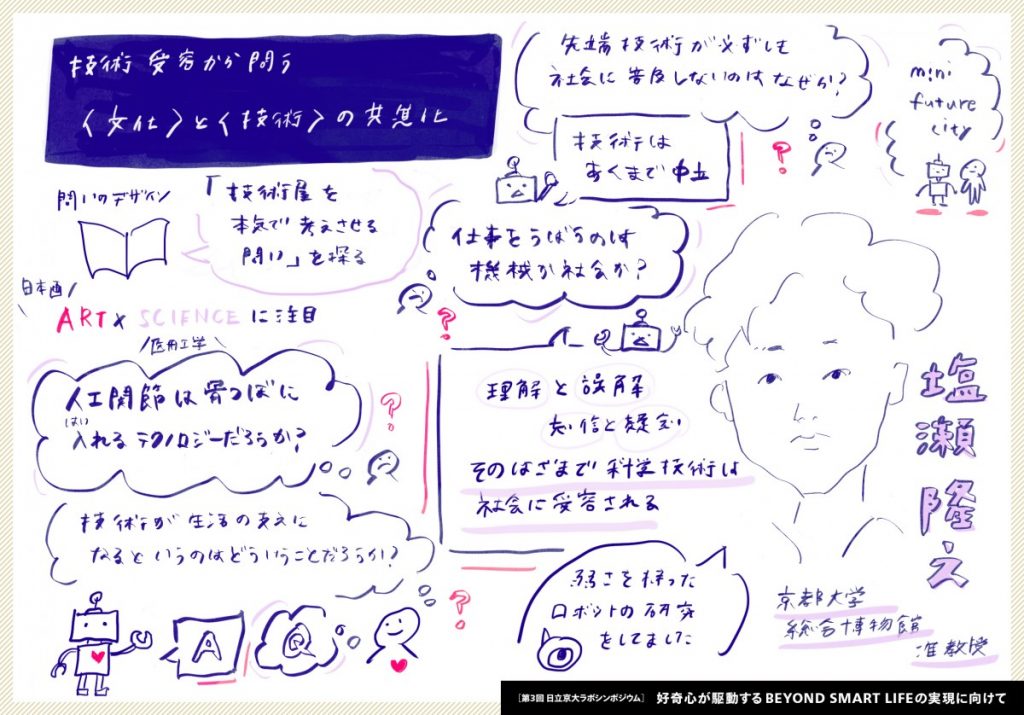 技術受容から問う
〈文化〉と〈技術〉の共進化
先端技術が必ずしも
社会に普及しないのはなぜか?
mini
future
city
技術は
あくまで中立
?
問いのデザイン
「技術屋を
本気で考えさせる
問い」を探る
仕事をうばうのは
機械か社会か?
?
日本画
ART × SCIENCE に注目
医用工学
人工関節は骨つぼに
はい
入れるテクノロジーだろうか?
?
理解と誤解
そのはざまで科学技術は
社会に受容される
技術が生活の支えに
なるというのはどういうことだろうか?
?
A
Q
弱さを採った
ロボットの研究
をしてました
塩瀬隆之
京都大学
総合博物館
准教授
[第3回 日立京大ラボシンポジウム] 好奇心が駆動するBEYOND SMART LIFEの実現に向けて